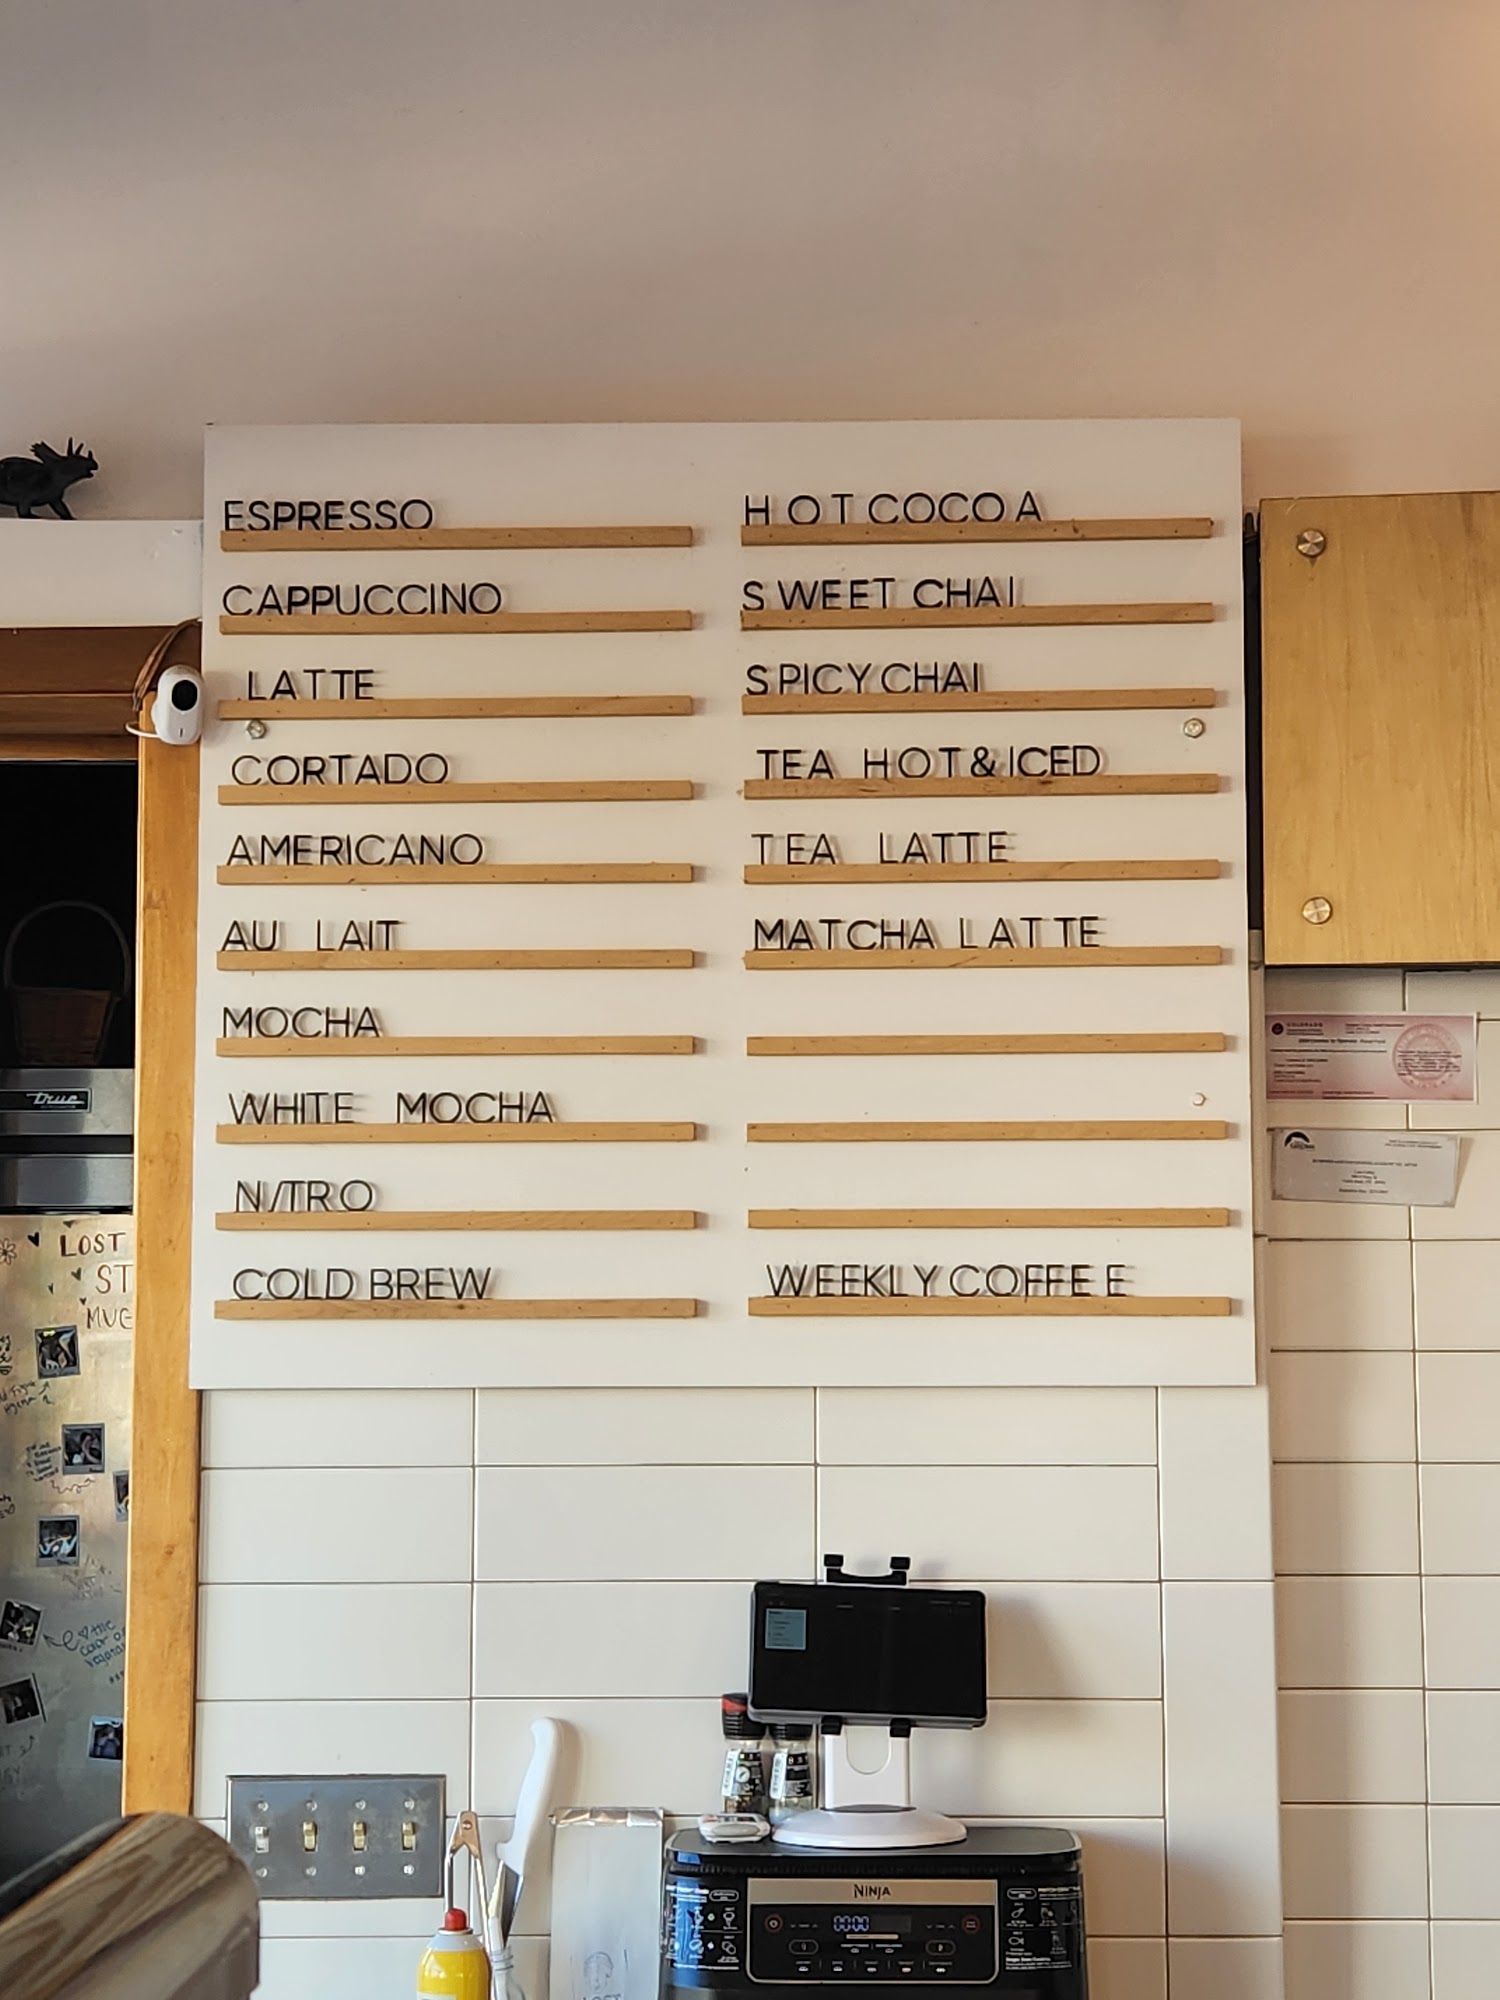 ESPRESSO
CAPPUCCINO
.LATTE
CORTADO
AMERICANO
AU LAIT
MOCHA
WHITE MOCHA
N/TRO
COLD BREW
HOT COCOA
SWEET CHAI
SPICY CHAI
TEA HOT & ICED
TEA LATTE
MATCHA LATTE
WEEKLY COFFEE
true
LOST
ST
MUG
COLORADO
NINJA
00:00